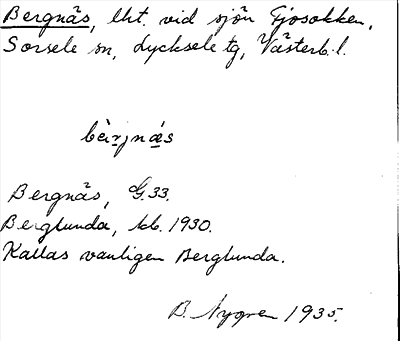 Bergnäs, lht. vid sjön Gjosokken,
Sorsele sn, Lycksele tg, Västerb. l.
bèrjnäs
Bergnäs, G. 33.
Berglunda, kb. 1930.
Kallas vanligen Berglunda.
B. Nygren 1935.